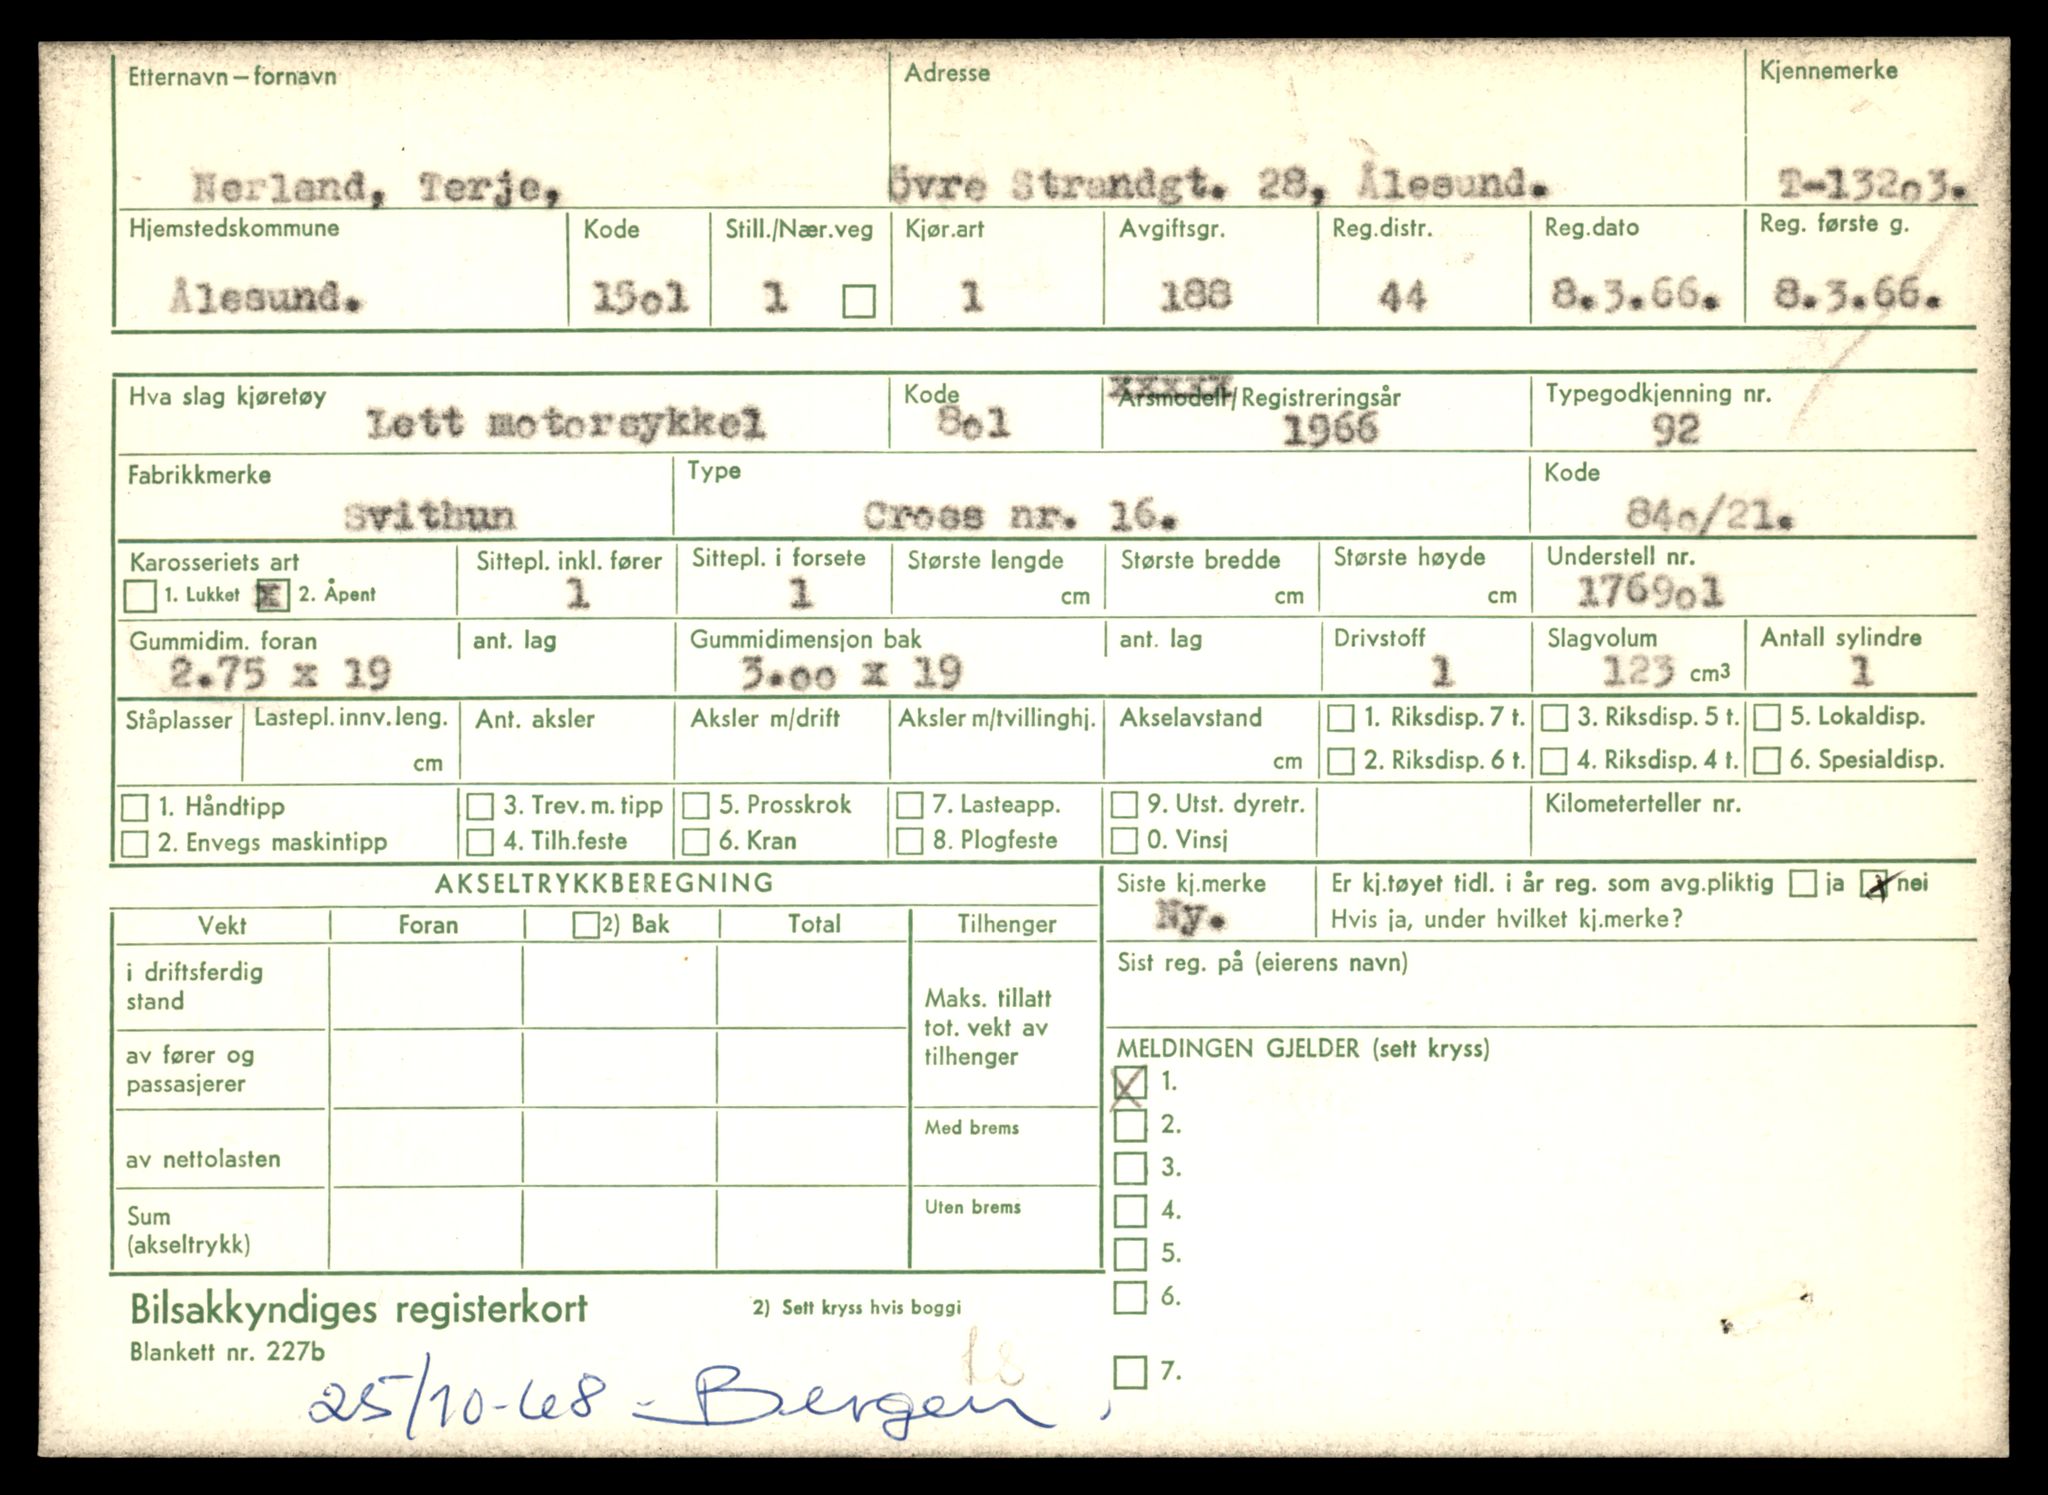 Etternavn – fornavn Adresse Kjennemerke
Nerland, Terje, Övre Strandgt. 28, Ålesund. T-13203.
Hjemstedskommune Kode Still./Nær.veg Kjør.art Avgiftsgr. Reg.distr. Reg.dato Reg. første g.
Ålesund. 1501 1 1 188 44 8.3.66. 8.3.66.
Hva slag kjøretøy Kode Årsmodell/Registreringsår Typegodkjenning nr.
Lett motorsykkel 801 1966 92
Fabrikkmerke Type Kode
Svithun Cross nr. 16. 840/21.
Karosseriets art Sittepl. inkl. fører Sittepl. i forsete Største lengde Største bredde Største høyde Understell nr.
1. Lukket x 2. Åpent 1 1 cm cm cm 176901
Gummidim. foran ant. lag Gummidimensjon bak ant. lag Drivstoff Slagvolum Antall sylindre
2.75 x 19 3.00 x 19 1 123 cm3 1
Ståplasser Lastepl. innv. leng. Ant. aksler Aksler m/drift Aksler m/tvillinghj. Akselavstand 1. Riksdisp. 7 t. 3. Riksdisp. 5 t. 5. Lokaldisp.
cm cm 2. Riksdisp. 6 t. 4. Riksdisp. 4 t. 6. Spesialdisp.
1. Håndtipp 3. Trev. m. tipp 5. Prosskrok 7. Lasteapp. 9. Utst. dyretr. Kilometerteller nr.
2. Envegs maskintipp 4. Tilh.feste 6. Kran 8. Plogfeste 0. Vinsj
AKSELTRYKKBEREGNING Siste kj.merke Er kj.tøyet tidl. i år reg. som avg.pliktig ja x nei
Ny. Hvis ja, under hvilket kj.merke?
Vekt Foran 2) Bak Total Tilhenger
Sist reg. på (eierens navn)
i driftsferdig
stand
Maks. tillatt
tot. vekt av
tilhenger
av fører og
passasjerer
MELDINGEN GJELDER (sett kryss)
x 1.
2.
av nettolasten Med brems
3.
Sum
(akseltrykk)
Uten brems
4.
5.
6.
Bilsakkyndiges registerkort 2) Sett kryss hvis boggi
Blankett nr. 227b
7.
25/10-68 - Bergen.